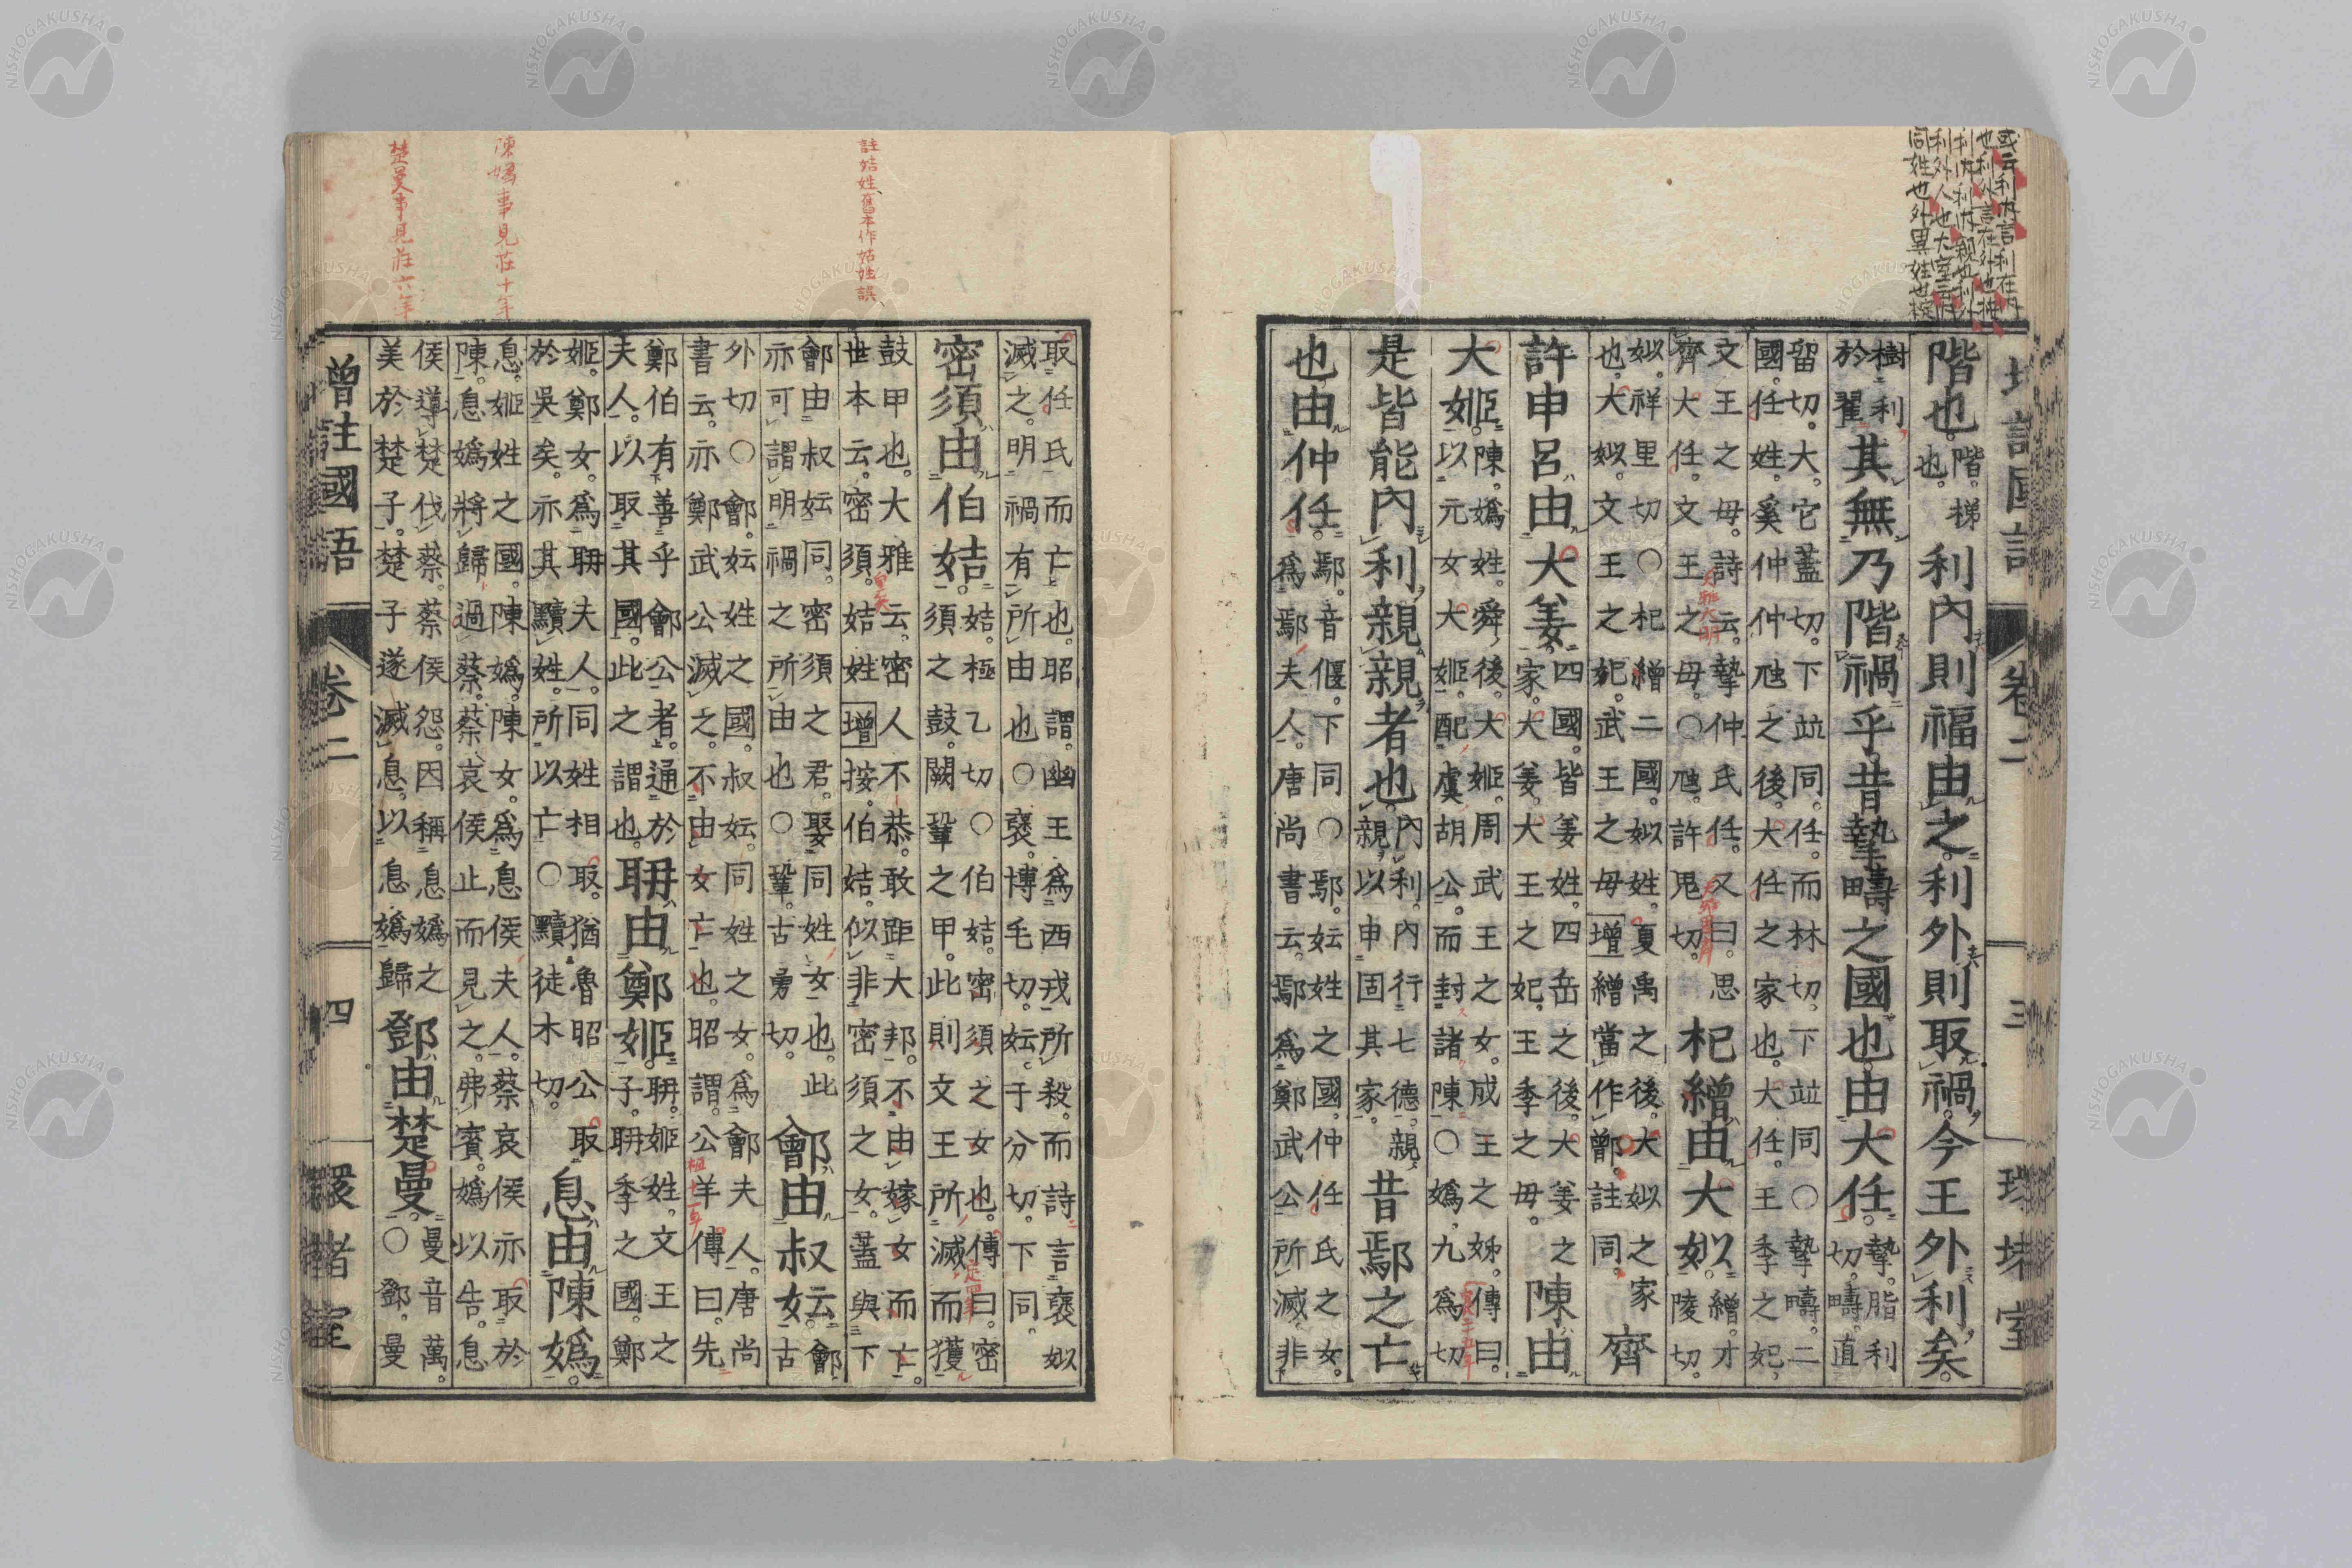 階也。階。梯也。利內則福由之。利外則取禍。今王外利矣。
樹利於翟其無乃階禍乎。昔摯疇之國也。由大任。摯。脂利切。疇。直
留切。大。它蓋切。下竝同。任。而林切。下竝同○摯疇。二國。任姓。奚仲仲虺之後。大任之家也。大任。王季之妃。
文王之母。詩云。摯仲氏任。又曰。思齊大任。文王之母。○虺。許鬼切。杞繒由大姒。繒。才陵切。
姒。祥里切○杞繒二國。姒姓。夏禹之後。大姒之家也。大姒。文王之妃。武王之母增繒當作鄫。註同。齊
許申呂由大姜。四國皆姜姓。四岳之後。大姜之家。大姜。大王之妃。王季之母。陳由
大姬。陳。嬀姓。舜後。大姬。周武王之女。成王之姊。傳曰。以元女大姬。配虞胡公。而封諸陳○嬀。九爲切
是皆能內利親親者也。內利。內行七德。親親。以申固其家。昔鄢之亡
也。由仲任。鄢。音偃。下同○鄢。妘姓之國。仲任氏之女。爲鄢夫人。唐尚書云。鄢爲鄭武公所滅。非
註姞姓、舊本作姑姓誤、
陳嬀事見莊十年
楚曼事見莊六年
取任氏而亡也。昭謂。幽王爲西戎所殺。而詩言襃姒滅之。明禍有所由也○襃。博毛切。妘。于分切。下同。
密須由伯姞。姞。極乙切○伯姞。密須之女也。傳曰。密須之鼓。闕鞏之甲。此則文王所滅而獲
鼓甲也。大雅云。密人不恭。敢距大邦。不由嫁女而亡。世本云。密須。姞姓增按。伯姞。似非密須之女。蓋與下
鄶由叔妘同。密須之君。娶同姓女也。此亦可謂明禍之所由也○鞏。古勇切。鄶由叔妘。鄶。古
外切○鄶。妘姓之國。叔妘。同姓之女。爲鄶夫人。唐尚書云。亦鄭武公滅之。不由女亡也。昭謂。公羊傳曰。先
鄭伯有善乎鄶公者。通於夫人。以取其國。此之謂也。聃由鄭姬。聃。姬姓。文王之子。聃季之國。鄭
姬。鄭女。爲聃夫人。同姓相取。猶魯昭公取於吳矣。亦其黷姓。所以亡○黷徒木切。息由陳嬀。
息。姬姓之國。陳嬀。陳女。爲息侯夫人。蔡哀侯亦取於陳。息嬀將歸過蔡。蔡哀侯止而見之。弗賓。嬀以告。息
侯導楚伐蔡。蔡侯怨。因稱息嬀之美於楚子。楚子遂滅息。以息嬀歸鄧由楚曼。曼音萬。○鄧。曼
增註國語 卷二 四